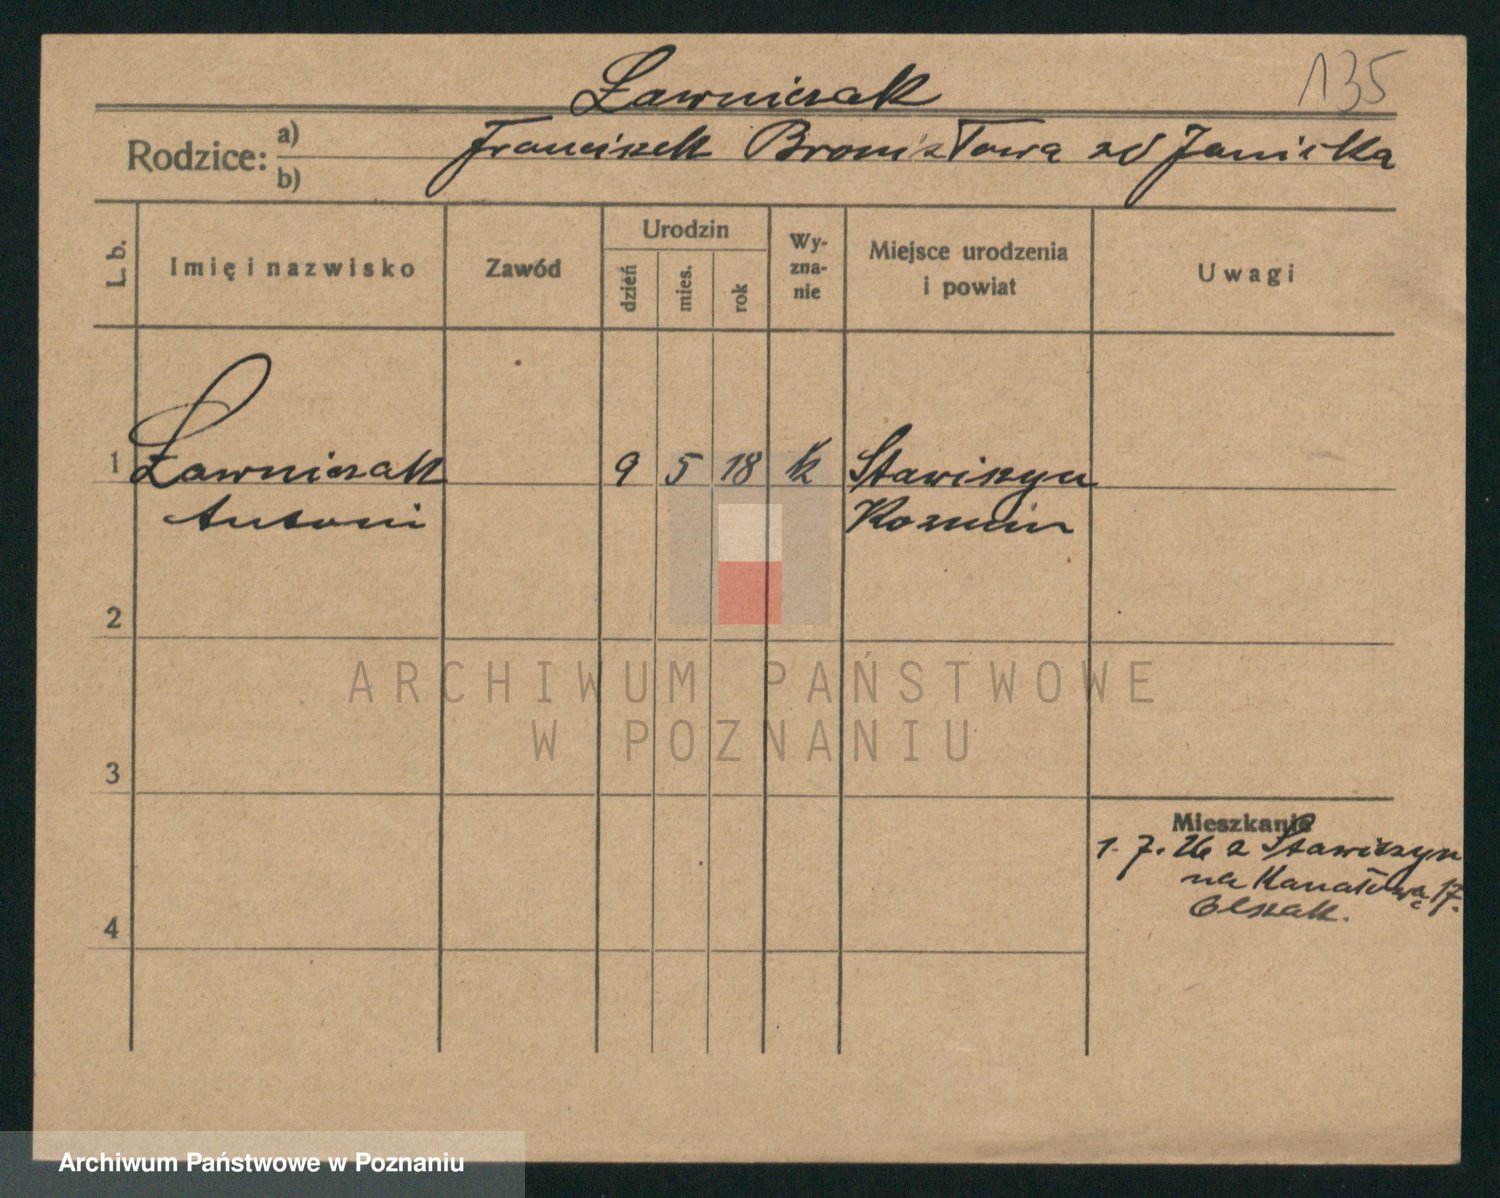 135
Ławniczak
Rodzice: a) Franciszek Bronisława zd Janicka
b)
L. b. Imię i nazwisko Zawód Urodzin dzień mies. rok Wy-zna-nie Miejsce urodzenia i powiat Uwagi
1 Ławniczak 9 5 18 k Stawiszyn
Antoni Kozmin
2
ARCHIWUM PAŃSTWOWE
W POZNANIU
3
Mieszkanie
1. 7. 26 z Stawiszyn
na Kanałową 17.
Olszak.
4
Archiwum Państwowe w Poznaniu